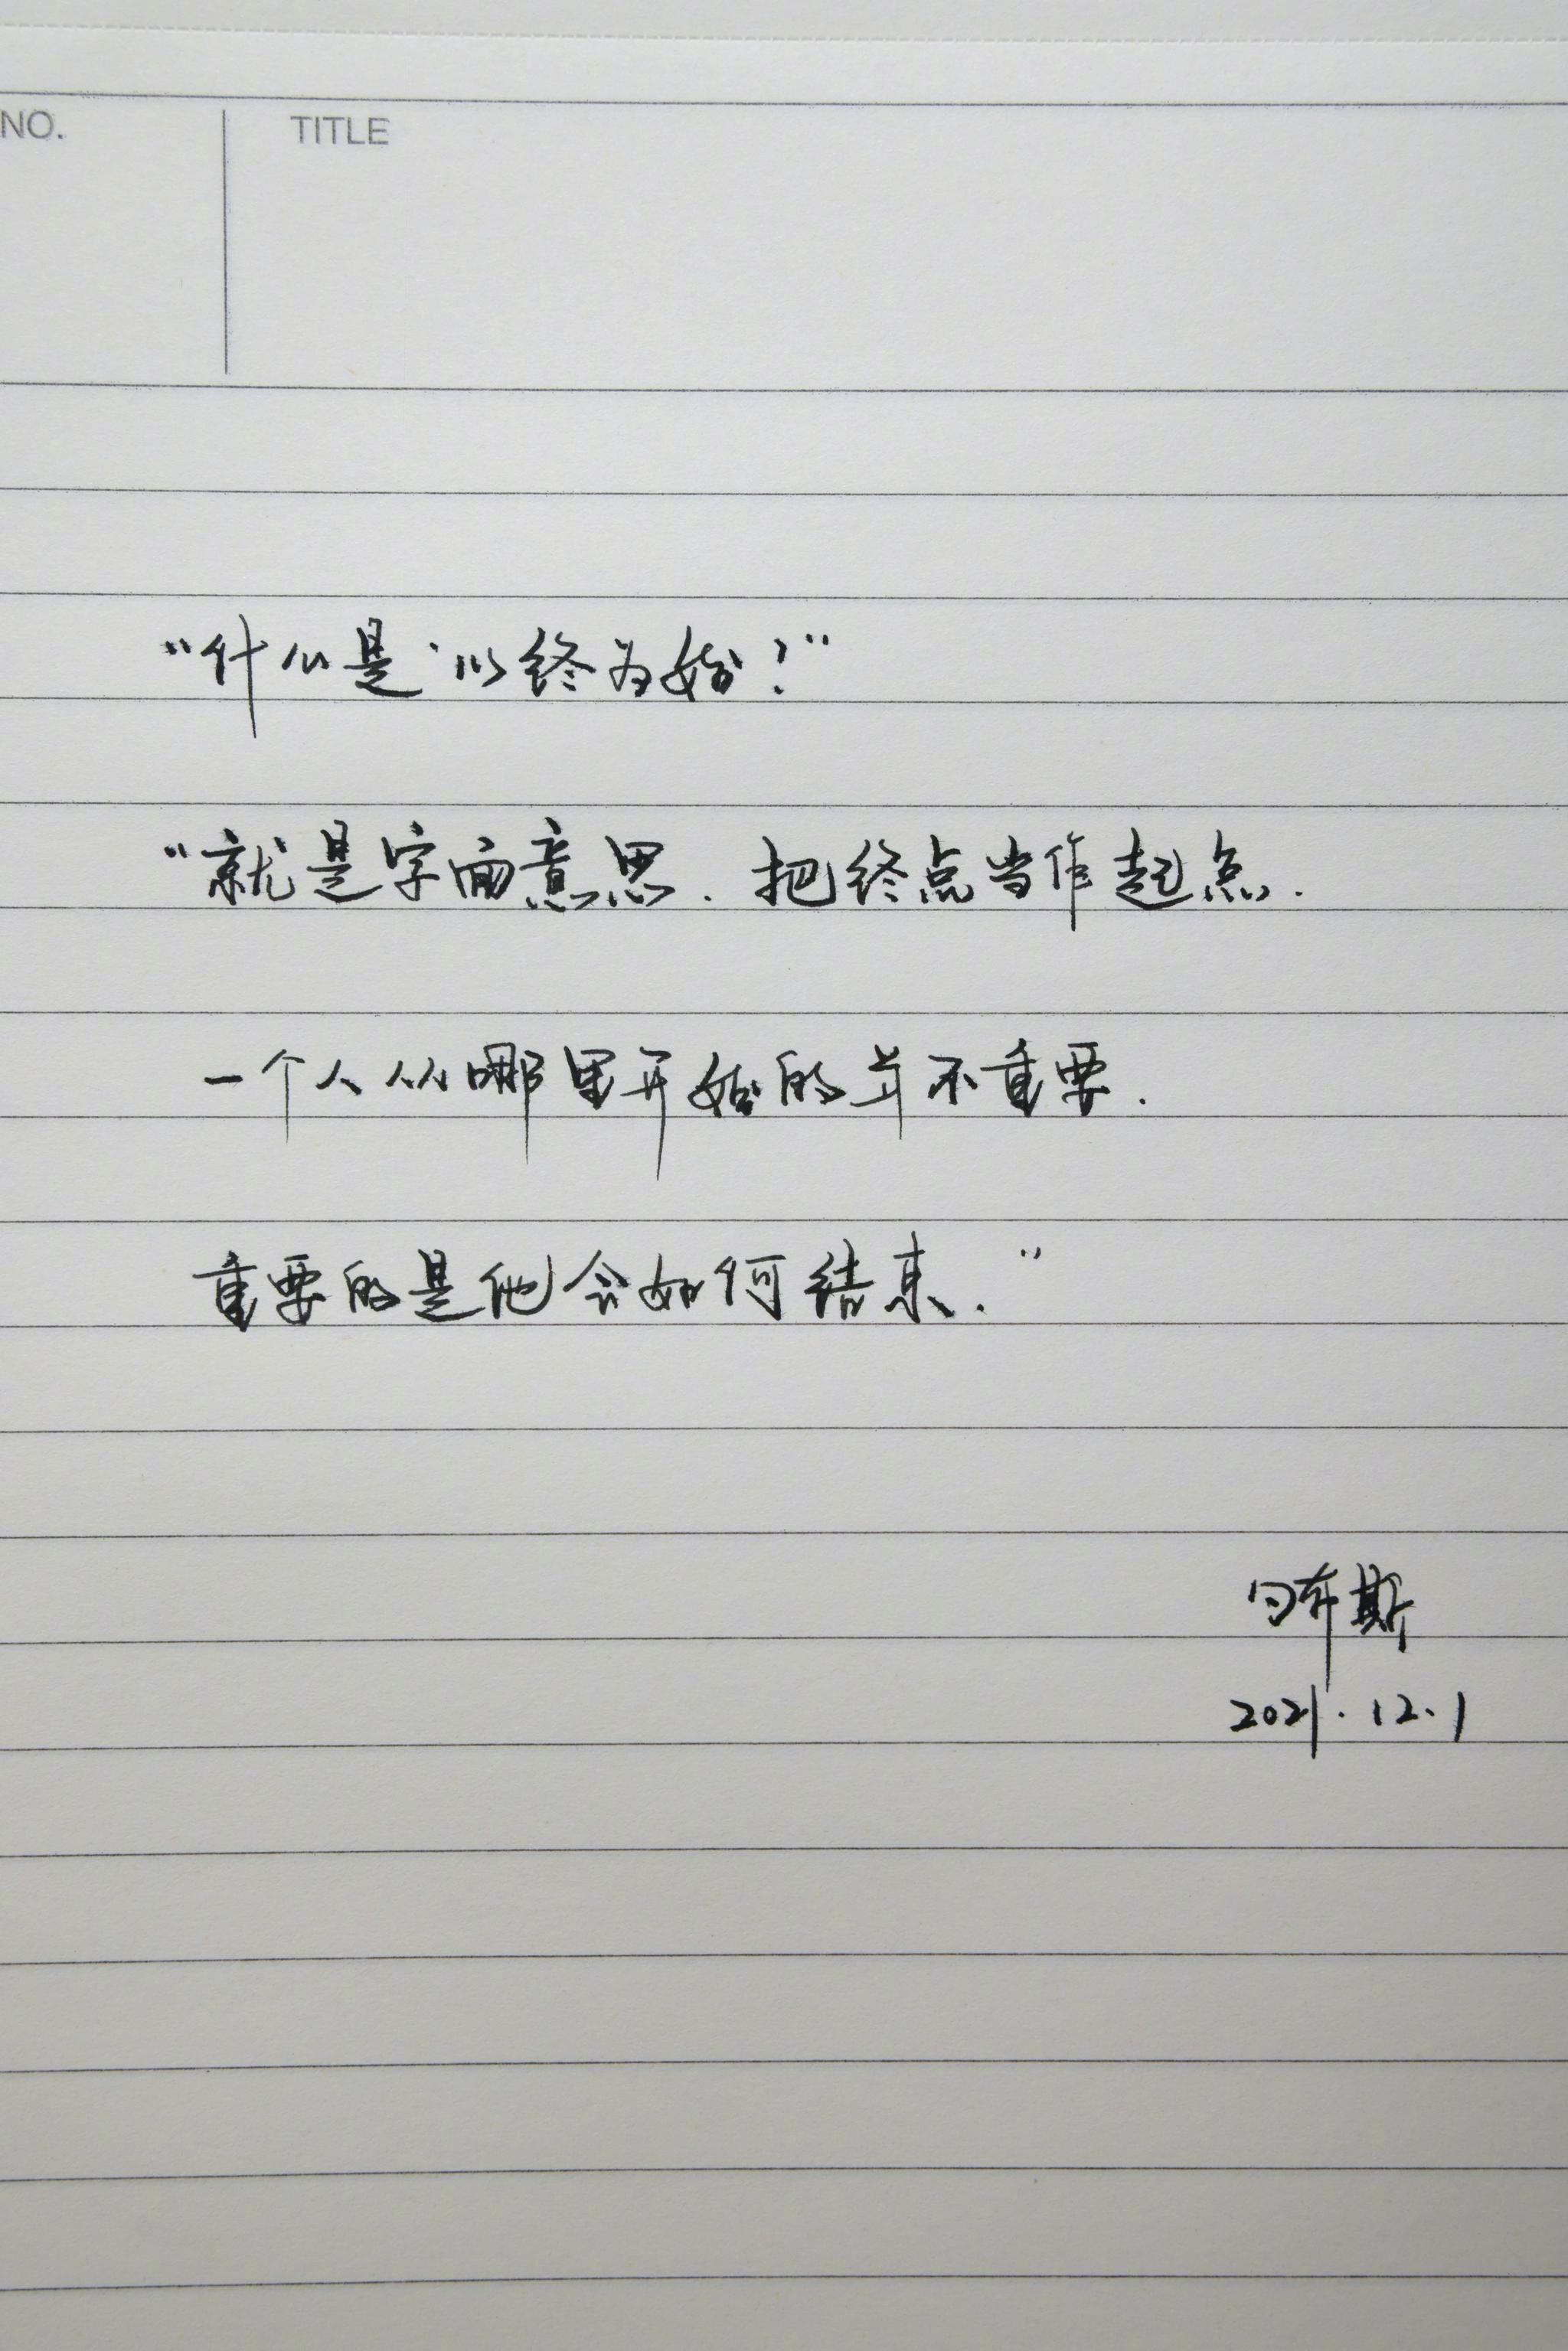 NO. TITLE
“什么是‘以终为始？”
“就是字面意思. 把终点当作起点.
一个人从哪里开始的并不重要.
重要的是他会如何结束.”
布斯
2021.12.1